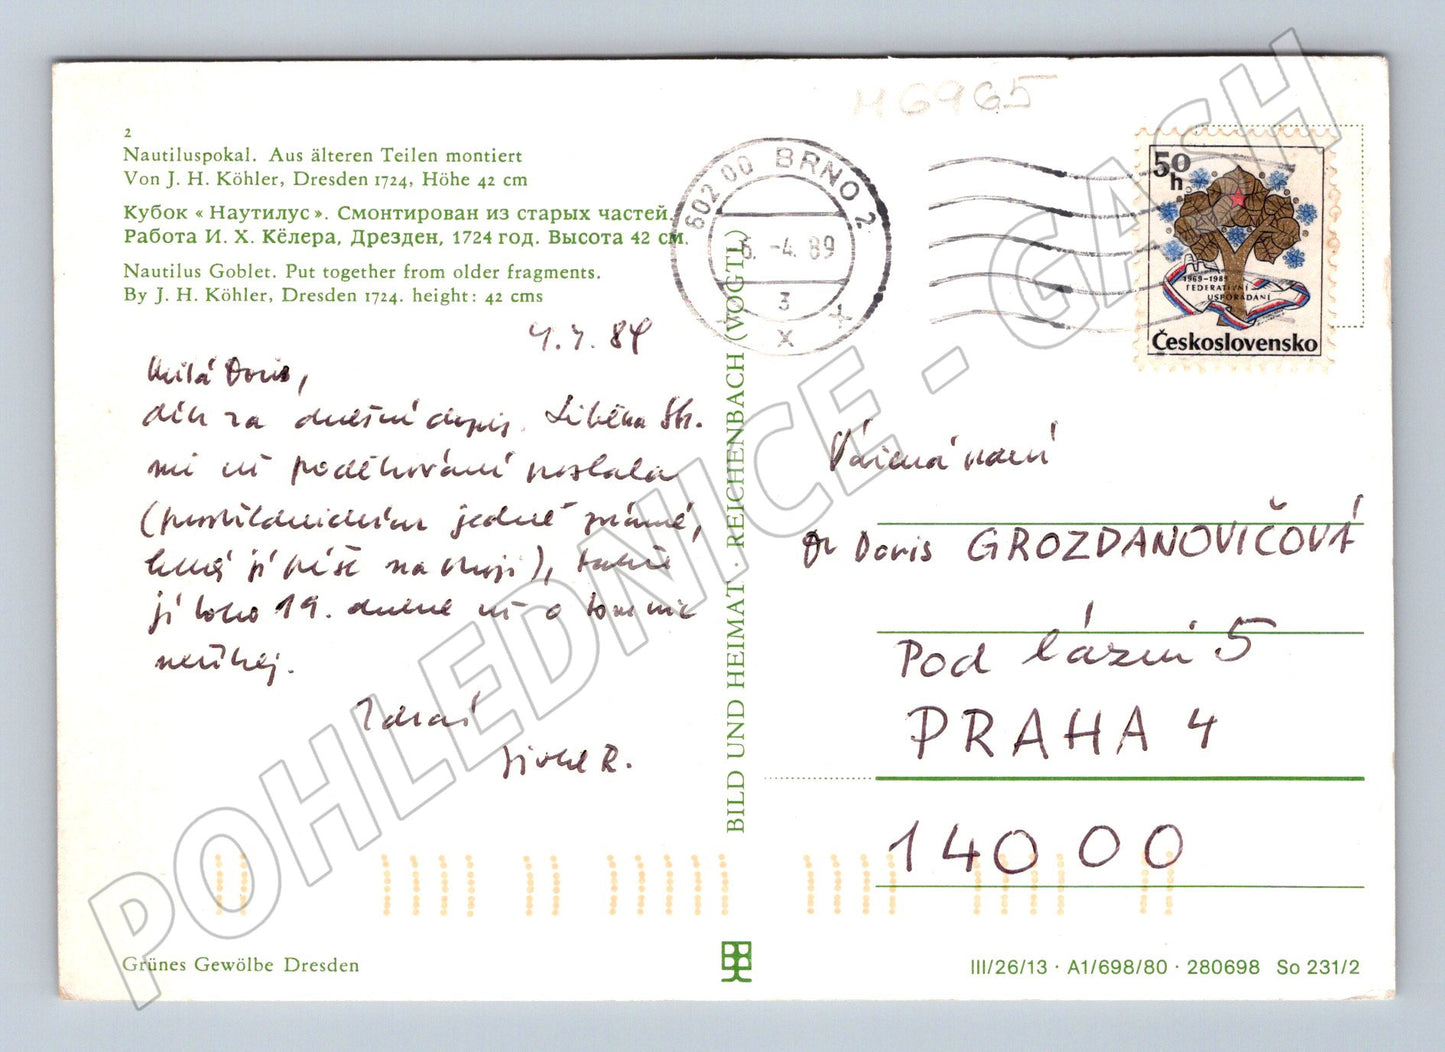 M6965
2
Nautiluspokal. Aus älteren Teilen montiert
Von J. H. Köhler, Dresden 1724, Höhe 42 cm
Кубок « Наутилус ». Смонтирован из старых частей.
Работа И. Х. Кёлера, Дрезден, 1724 год. Высота 42 см.
Nautilus Goblet. Put together from older fragments.
By J. H. Köhler, Dresden 1724. height: 42 cms
602 00 BRNO 2
6. -4. 89
3
x x x
50 h
1969-1989
FEDERATIVNÍ
USPOŘÁDÁNÍ
Československo
4.4.89
Milá Doris,
dík za dnešní dopis. Liběna Št.
mi už poděkování poslala
jedné známé,
jí píše na stroji), takže
jí toho 19. dubna už o tom nic
neříkej.
Zdraví
R.
BILD UND HEIMAT · REICHENBACH (VOGTL)
Vážená paní
Dr Doris GROZDANOVIČOVÁ
Pod lázní 5
PRAHA 4
140 00
Grünes Gewölbe Dresden
III/26/13 · A1/698/80 · 280698 So 231/2
POHLEDNICE - GASH